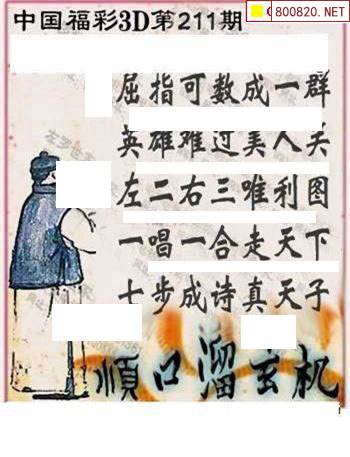 中国福彩3D第211期
800820.NET
屈指可数成一群
英雄难过美人关
左二右三唯利图
一唱一合走天下
七步成诗真天子
顺口溜玄机